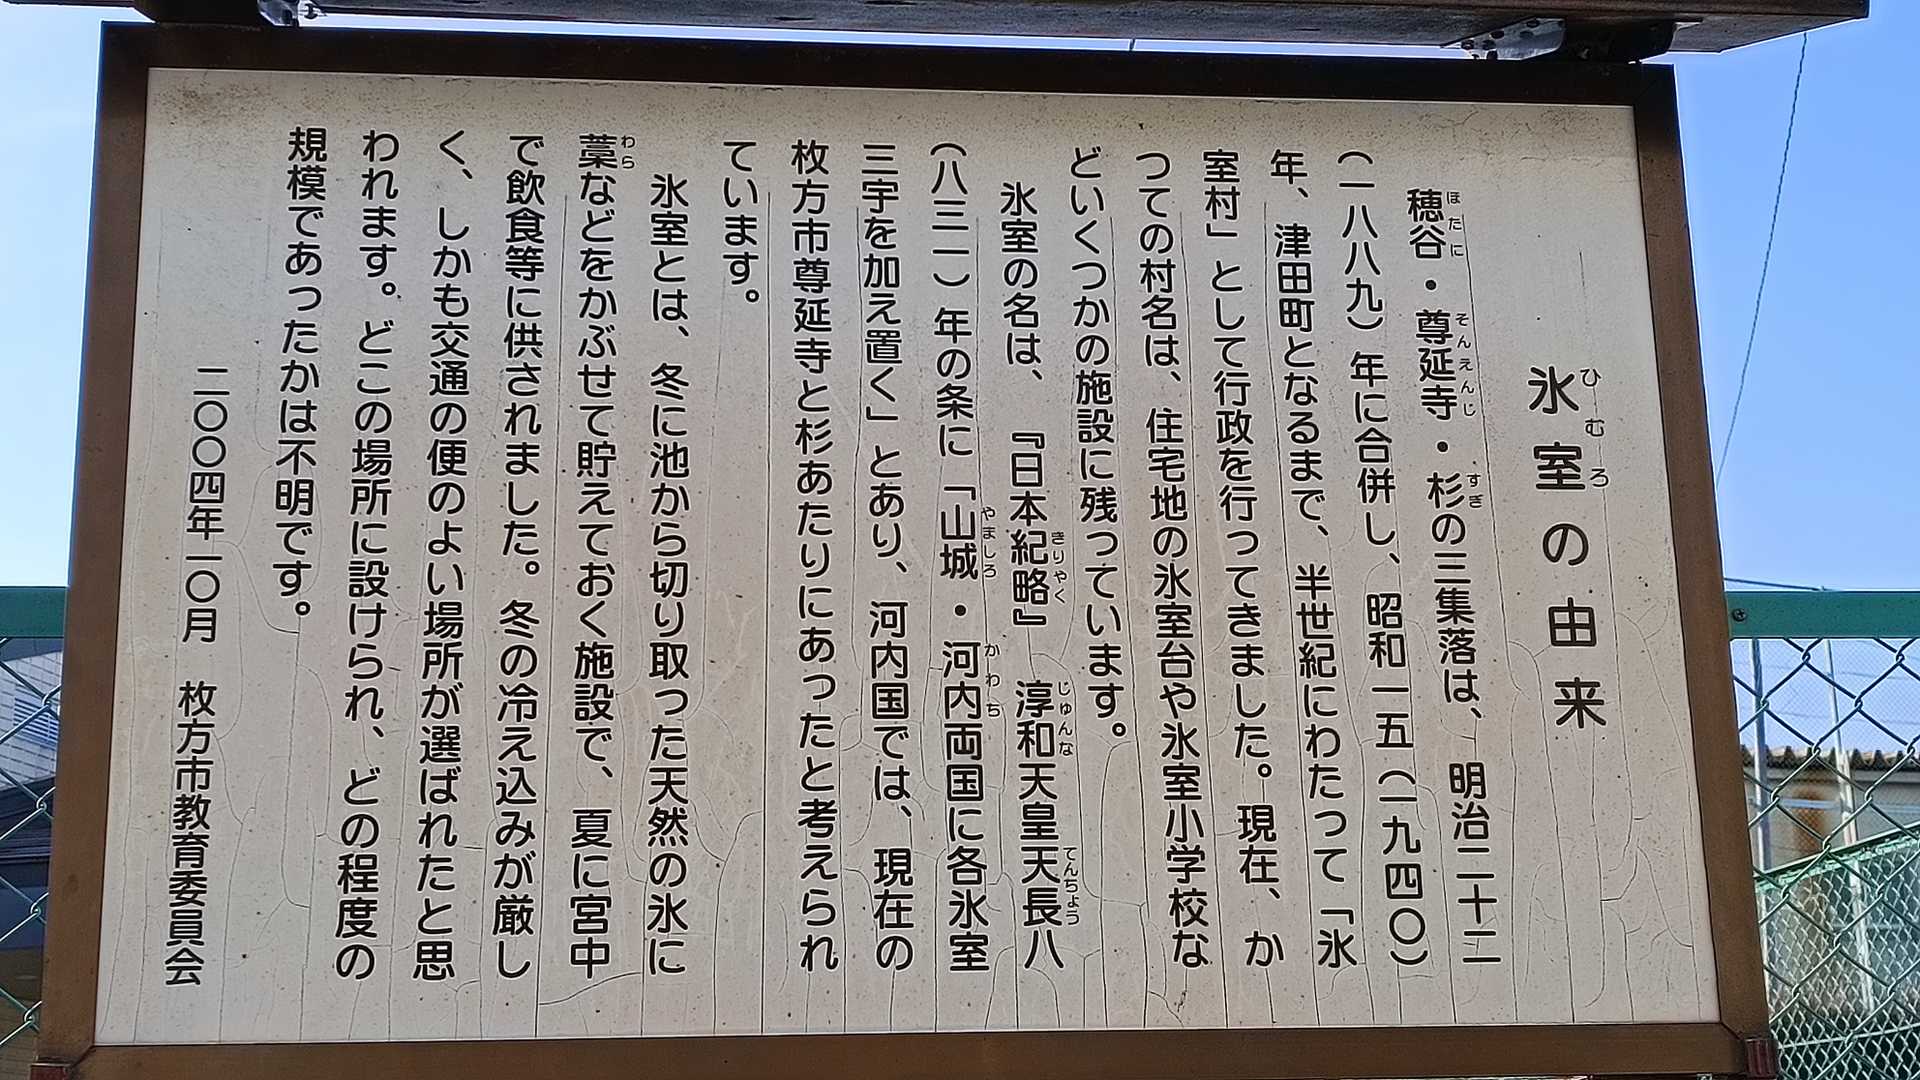 氷室の由来
穂谷・尊延寺・杉の三集落は、明治二十二
(一八八九)年に合併し、昭和一五(一九四〇)
年、津田町となるまで、半世紀にわたって「氷
室村」として行政を行ってきました。現在、か
つての村名は、住宅地の氷室台や氷室小学校な
どいくつかの施設に残っています。
氷室の名は、『日本紀略』淳和天皇天長八
(八三一)年の条に「山城・河内両国に各氷室
三宇を加え置く」とあり、河内国では、現在の
枚方市尊延寺と杉あたりにあったと考えられ
ています。
氷室とは、冬に池から切り取った天然の氷に
藁などをかぶせて貯えておく施設で、夏に宮中
で飲食等に供されました。冬の冷え込みが厳し
く、しかも交通の便のよい場所が選ばれたと思
われます。どこの場所に設けられ、どの程度の
規模であったかは不明です。
二〇〇四年一〇月 枚方市教育委員会